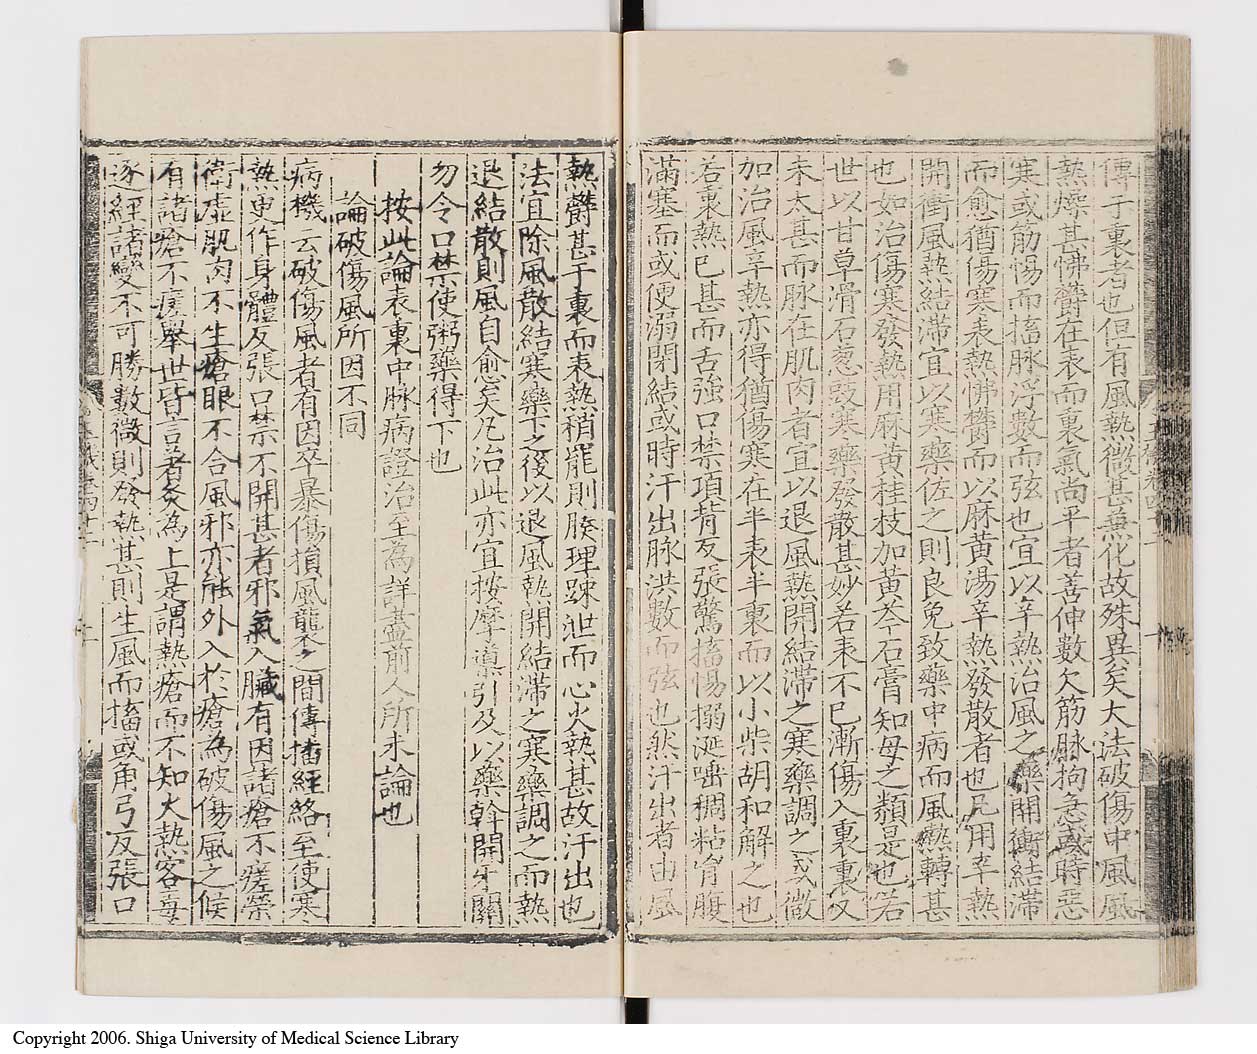 傳于裏者也但有風熱微甚兼化故殊異矣大法破傷中風風
熱燥甚怫鬱在表而裏氣尚平者善伸數欠筋脉拘急或時惡
寒或筋惕而搐脉浮數而弦也宜以辛熱治風之藥開衝結滯
而愈猶傷寒表熱怫鬱而以麻黃湯辛熱發散者也凡用辛熱
開衝風熱結滯宜以寒藥佐之則良免致藥中病而風熱轉甚
也如治傷寒發熱用麻黃桂枝加黃芩石膏知母之類是也若
世以甘草滑石葱豉寒藥發散甚妙若表不已漸傷入裏裏又
未太甚而脉在肌肉者宜以退風熱開結滯之寒藥調之或微
加治風辛熱亦得猶傷寒在半表半裏而以小柴胡和解之也
若裏熱已甚而舌強口禁項背反張驚搐惕搦涎唾稠粘胷腹
滿塞而或便溺閉結或時汗出脉洪數而弦也然汗出者由風
熱欝甚于裏而表熱稍罷則腠理踈泄而心火熱甚故汗出也
法宜除風散結寒藥下之後以退風熱開結滯之寒藥調之而熱
退結散則風自愈矣凡治此亦宜按摩導引及以藥幹開牙關
勿令口禁使粥藥得下也
按此論表裏中脉病證治至為詳盡前人所未論也
論破傷風所因不同
病機云破傷風者有因卒暴傷損風襲之間傳播經絡至使寒
熱更作身體反張口禁不開甚者邪氣入臟有因諸瘡不瘥榮
衛虛肌肉不生瘡眼不合風邪亦能外入於瘡為破傷風之候
有諸瘡不瘥舉世皆言著灸為上是謂熱瘡而不知大熱客毒
逐經諸變不可勝數微則發熱甚則生風而搐或角弓反張口
Copyright 2006. Shiga University of Medical Science Library